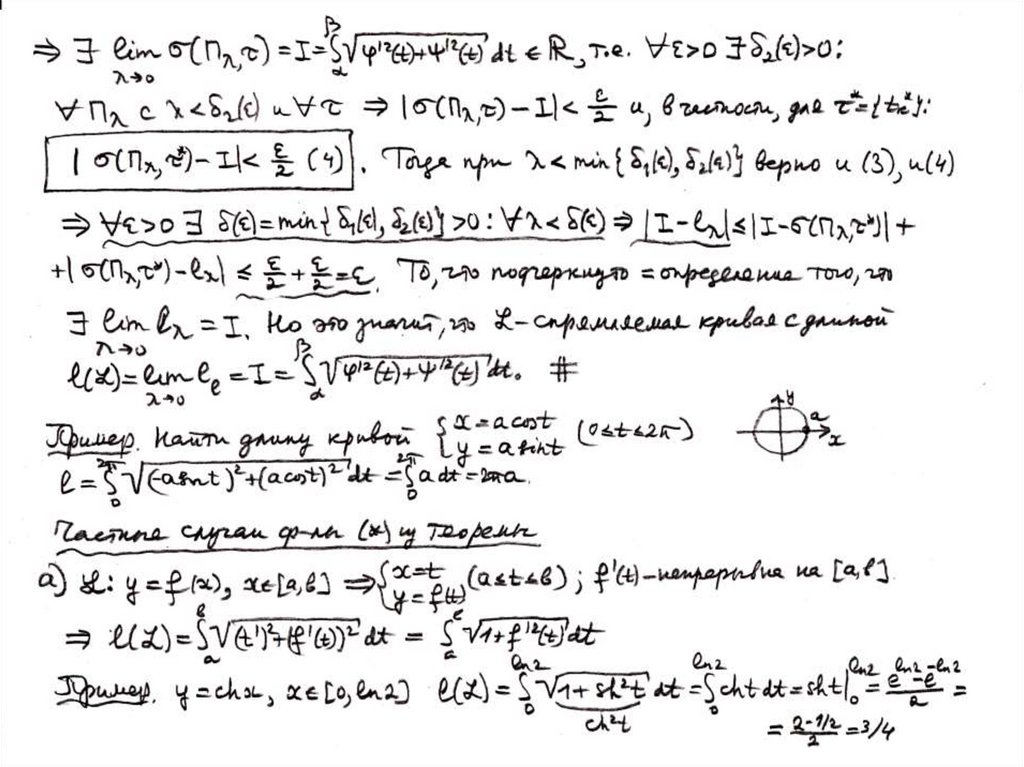 ⇒ ∃ lim_{λ→0} σ(Π_λ,τ) = I = ∫_α^β √(φ'²(t)+ψ'²(t)) dt ∈ ℝ, т.е. ∀ε>0 ∃ δ₂(ε)>0:
∀ Π_λ с λ<δ₂(ε) и ∀ τ ⇒ |σ(Π_λ,τ) − I| < ε/2 и, в частности, для τ*={t_k*}:
|σ(Π_λ,τ*) − I| < ε/2 (4). Тогда при λ < min{δ₁(ε), δ₂(ε)} верно и (3), и (4)
⇒ ∀ε>0 ∃ δ(ε)=min{δ₁(ε), δ₂(ε)}>0: ∀ λ<δ(ε) ⇒ |I−l_λ| ≤ |I−σ(Π_λ,τ*)| +
+|σ(Π_λ,τ*)−l_λ| ≤ ε/2 + ε/2 = ε. То, что подчеркнуто = определение того, что
∃ lim_{λ→0} l_λ = I. Но это значит, что ℒ-спрямляемая кривая с длиной
l(ℒ) = lim_{λ→0} l_e = I = ∫_α^β √(φ'²(t)+ψ'²(t)) dt. #
Пример. Найти длину кривой {x = a cos t, y = a sin t (0≤t≤2π) y a x
l = ∫_0^{2π} √((-a sin t)²+(a cos t)²) dt = ∫_0^{2π} a dt = 2πa.
Частные случаи ф-лы (*) из теоремы
а) ℒ: y = f(x), x∈[a,b] ⇒ {x=t, y=f(t) (a≤t≤b); f'(t)-непрерывна на [a,b].
⇒ l(ℒ) = ∫_a^b √((t')²+(f'(t))²) dt = ∫_a^b √(1+f'²(t)) dt
Пример. y = ch x, x∈[0, ln2] l(ℒ) = ∫_0^{ln2} √(1+sh²t) dt = ∫_0^{ln2} ch t dt = sh t|_0^{ln2} = (e^{ln2}−e^{−ln2})/2 =
ch²t = (2−1/2)/2 = 3/4